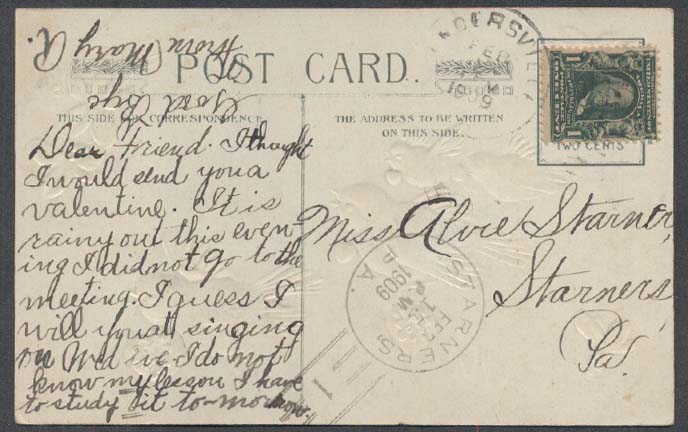 POST CARD.
THIS SIDE FOR CORRESPONDENCE
THE ADDRESS TO BE WRITTEN
ON THIS SIDE
TWO CENTS
Dear Friend. I thought
I would send you a
valentine. It is
rainy out this even-
ing I did not go to the
meeting. I guess I
will you at singing
on Wed eve I do not
know my lesson I have
to study it to-morrow.
Good Bye
From Mary A.
Miss Alvie Starner,
Starners
Pa.
STARNERS, PA.
FEB
1909
FEB
1909
1